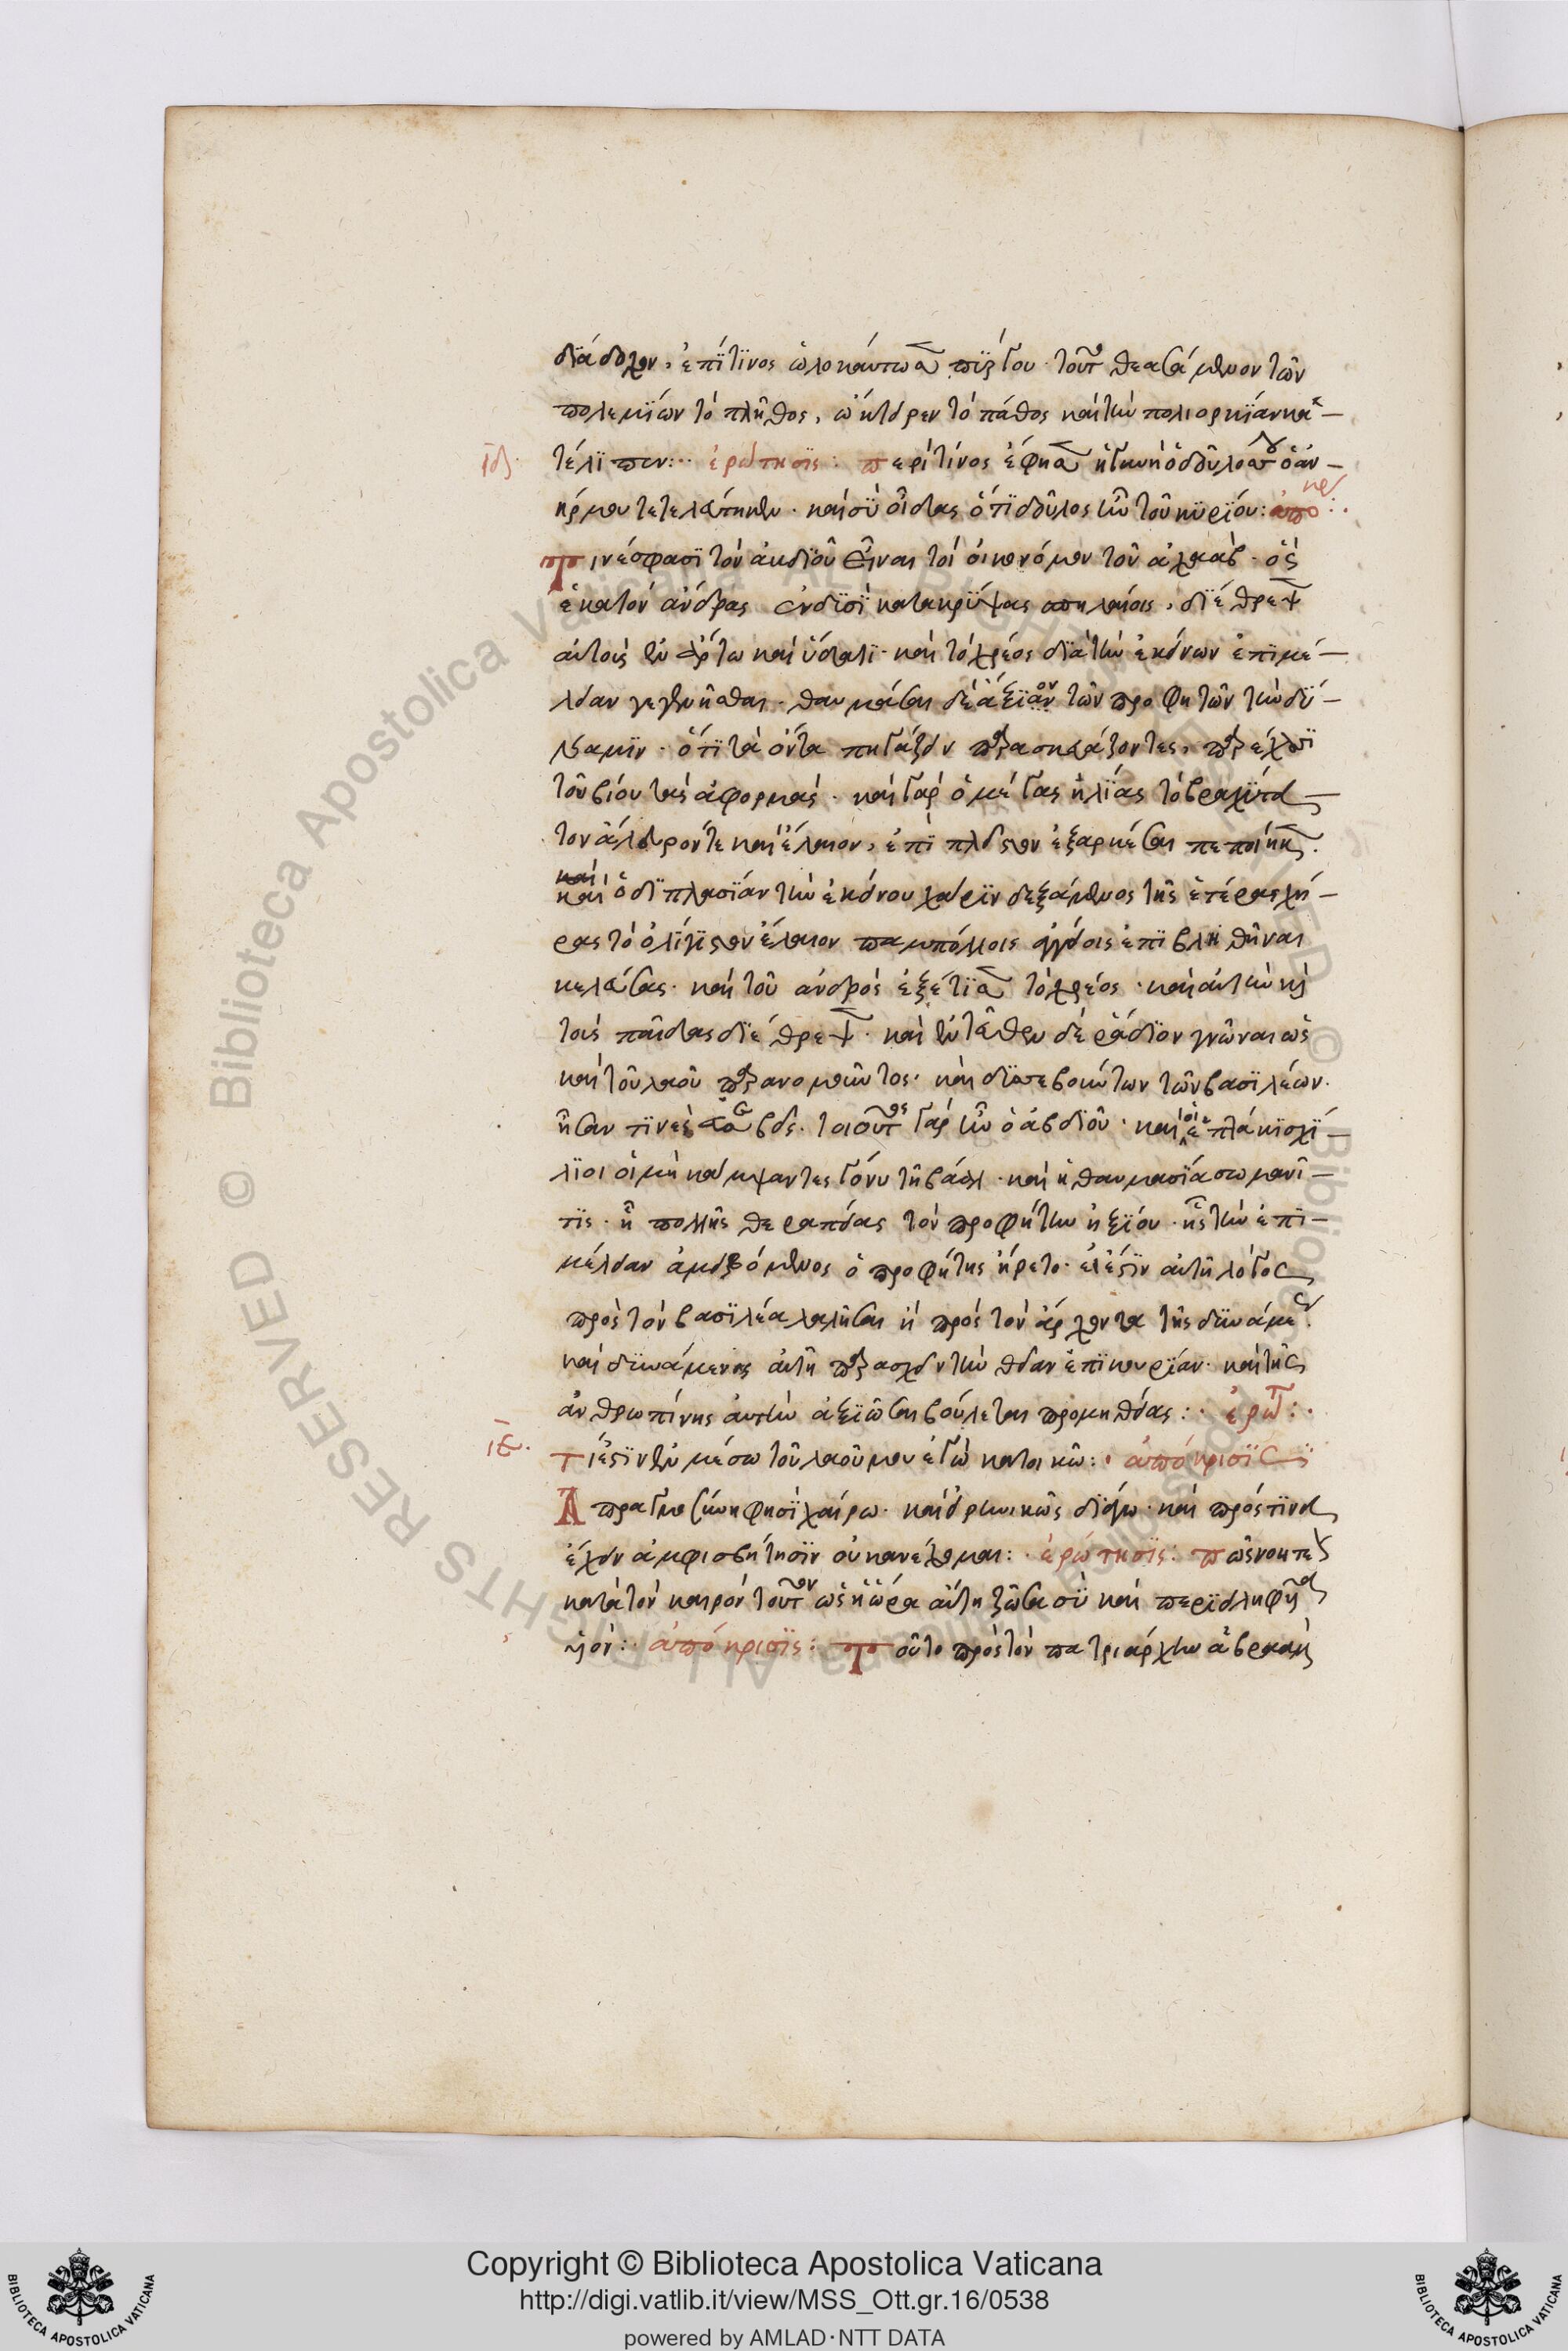 διάδοχον, ἐπὶ τίνος ὡλοκαύτωσε πύργου· τοῦτο θεασάμενον τῶν
πολεμίων τὸ πλῆθος, ὤκτειρεν τὸ πάθος καὶ τὴν πολιορκίαν κα–
ιδ. τέλιπεν:· ἐρώτησϊς: περὶ τίνος ἔφησε ἡ γυνὴ ὁ δοῦλος σου ὁ ἀν–
ήρ μου τετελεύτηκεν· καὶ σὺ οἶδας ὅτι δοῦλος ἦν τοῦ κυρίου: ἀπόκρ:
Τινές φασι τὸν ἀβδιοῦ εἶναι τὸν οἰκονόμον τοῦ ἀχαάβ· ὃς
ἑκατὸν ἄνδρας ἐν δυσὶ κατακρύψας σπηλαίοις, διέθρεψε
αὐτοὺς ἐν ἄρτω καὶ ὕδατι· καὶ τὸ χρέος διὰ τὴν ἐκείνων ἐπιμέ–
λειαν γεγενῆσθαι· θαυμάσαι δὲ ἄξιον τῶν προφητῶν τὴν δύ–
ναμιν· ὅτι τὰ ὄντα πηγάζειν παρασκευάζοντες, παρέχουσι
τοῦ βίου τὰς ἀφορμάς· καὶ γὰρ ὁ μέγας ἠλίας τὸ βραχύτα–
τον ἄλευρόν τε καὶ ἔλαιον, ἐπὶ πλεῖστον ἐξαρκέσαι πεποίηκε.
καὶ ὁ διπλασίαν τὴν ἐκείνου χάριν δεξάμενος τῆς ἑτέρας χή–
ρας τὸ ὀλίγιστον ἔλαιον παμπόλλοις ἀγγείοις ἐπιβληθῆναι
κελεύσας· καὶ τοῦ ἀνδρὸς ἐξέτισε τὸ χρέος· καὶ αὐτὴν καὶ
τοὺς παῖδας διέθρεψε· καὶ ἐντεῦθεν δὲ ῥάδιον γνῶναι ὡς
καὶ τοῦ λαοῦ παρανομοῦντος· καὶ δυσσεβούντων τῶν βασιλέων·
ἦσαν τινὲς εὐσεβεῖς· τοιοῦτος γὰρ ἦν ὁ ἀβδιοῦ· καὶ οἱ ἑπτάκισχί–
λιοι οἱ μὴ κάμψαντες γόνυ τῆ βάαλ· καὶ ἡ θαυμασία σωμανῖ–
τις· ἣ πολλῆς θεραπείας τὸν προφήτην ἠξίου· ἧς τὴν ἐπι–
μέλειαν ἀμειβόμενος ὁ προφήτης ἤρετο· εἰ ἔστιν αὐτῆ λόγος
πρὸς τὸν βασιλέα λαλῆσαι ἢ πρὸς τὸν ἄρχοντα τῆς δυνάμεως.
καὶ δυνάμενος αὐτῆ παρασχεῖν τὴν θείαν ἐπικουρίαν· καὶ τῆς
ἀνθρωπίνης αὐτὴν ἀξιῶσαι βούλεται προμηθείας:· ἐρώτ:·
ιε. τί ἐστιν ἐν μέσω τοῦ λαοῦ μου ἐγὼ κατοικῶ:· ἀπόκρισϊς
Ἀπραγμοσύνη φησὶ χαίρω· καὶ εἰρηνικῶς διάγω· καὶ πρός τινα
ἔχειν ἀμφισβήτησιν οὐκ ἀνέχομαι:· ἐρώτησϊς: πῶς νοητέον
κατὰ τὸν καιρὸν τοῦτον ὡς ἡ ὥρα αὕτη ζῶσα σὺ καὶ περιειληφυῖα
υἱόν:· ἀπόκρισϊς: τοῦτο πρὸς τὸν πατριάρχην ἀβραὰμ